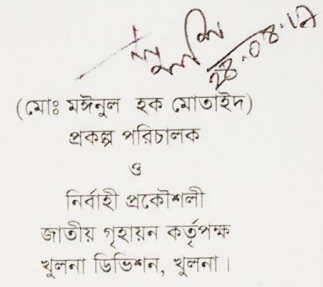 ২৪.০৪.১৭
(মোঃ মঈনুল হক মোতাইদ)
প্রকল্প পরিচালক
ও
নির্বাহী প্রকৌশলী
জাতীয় গৃহায়ন কর্তৃপক্ষ
খুলনা ডিভিশন, খুলনা।